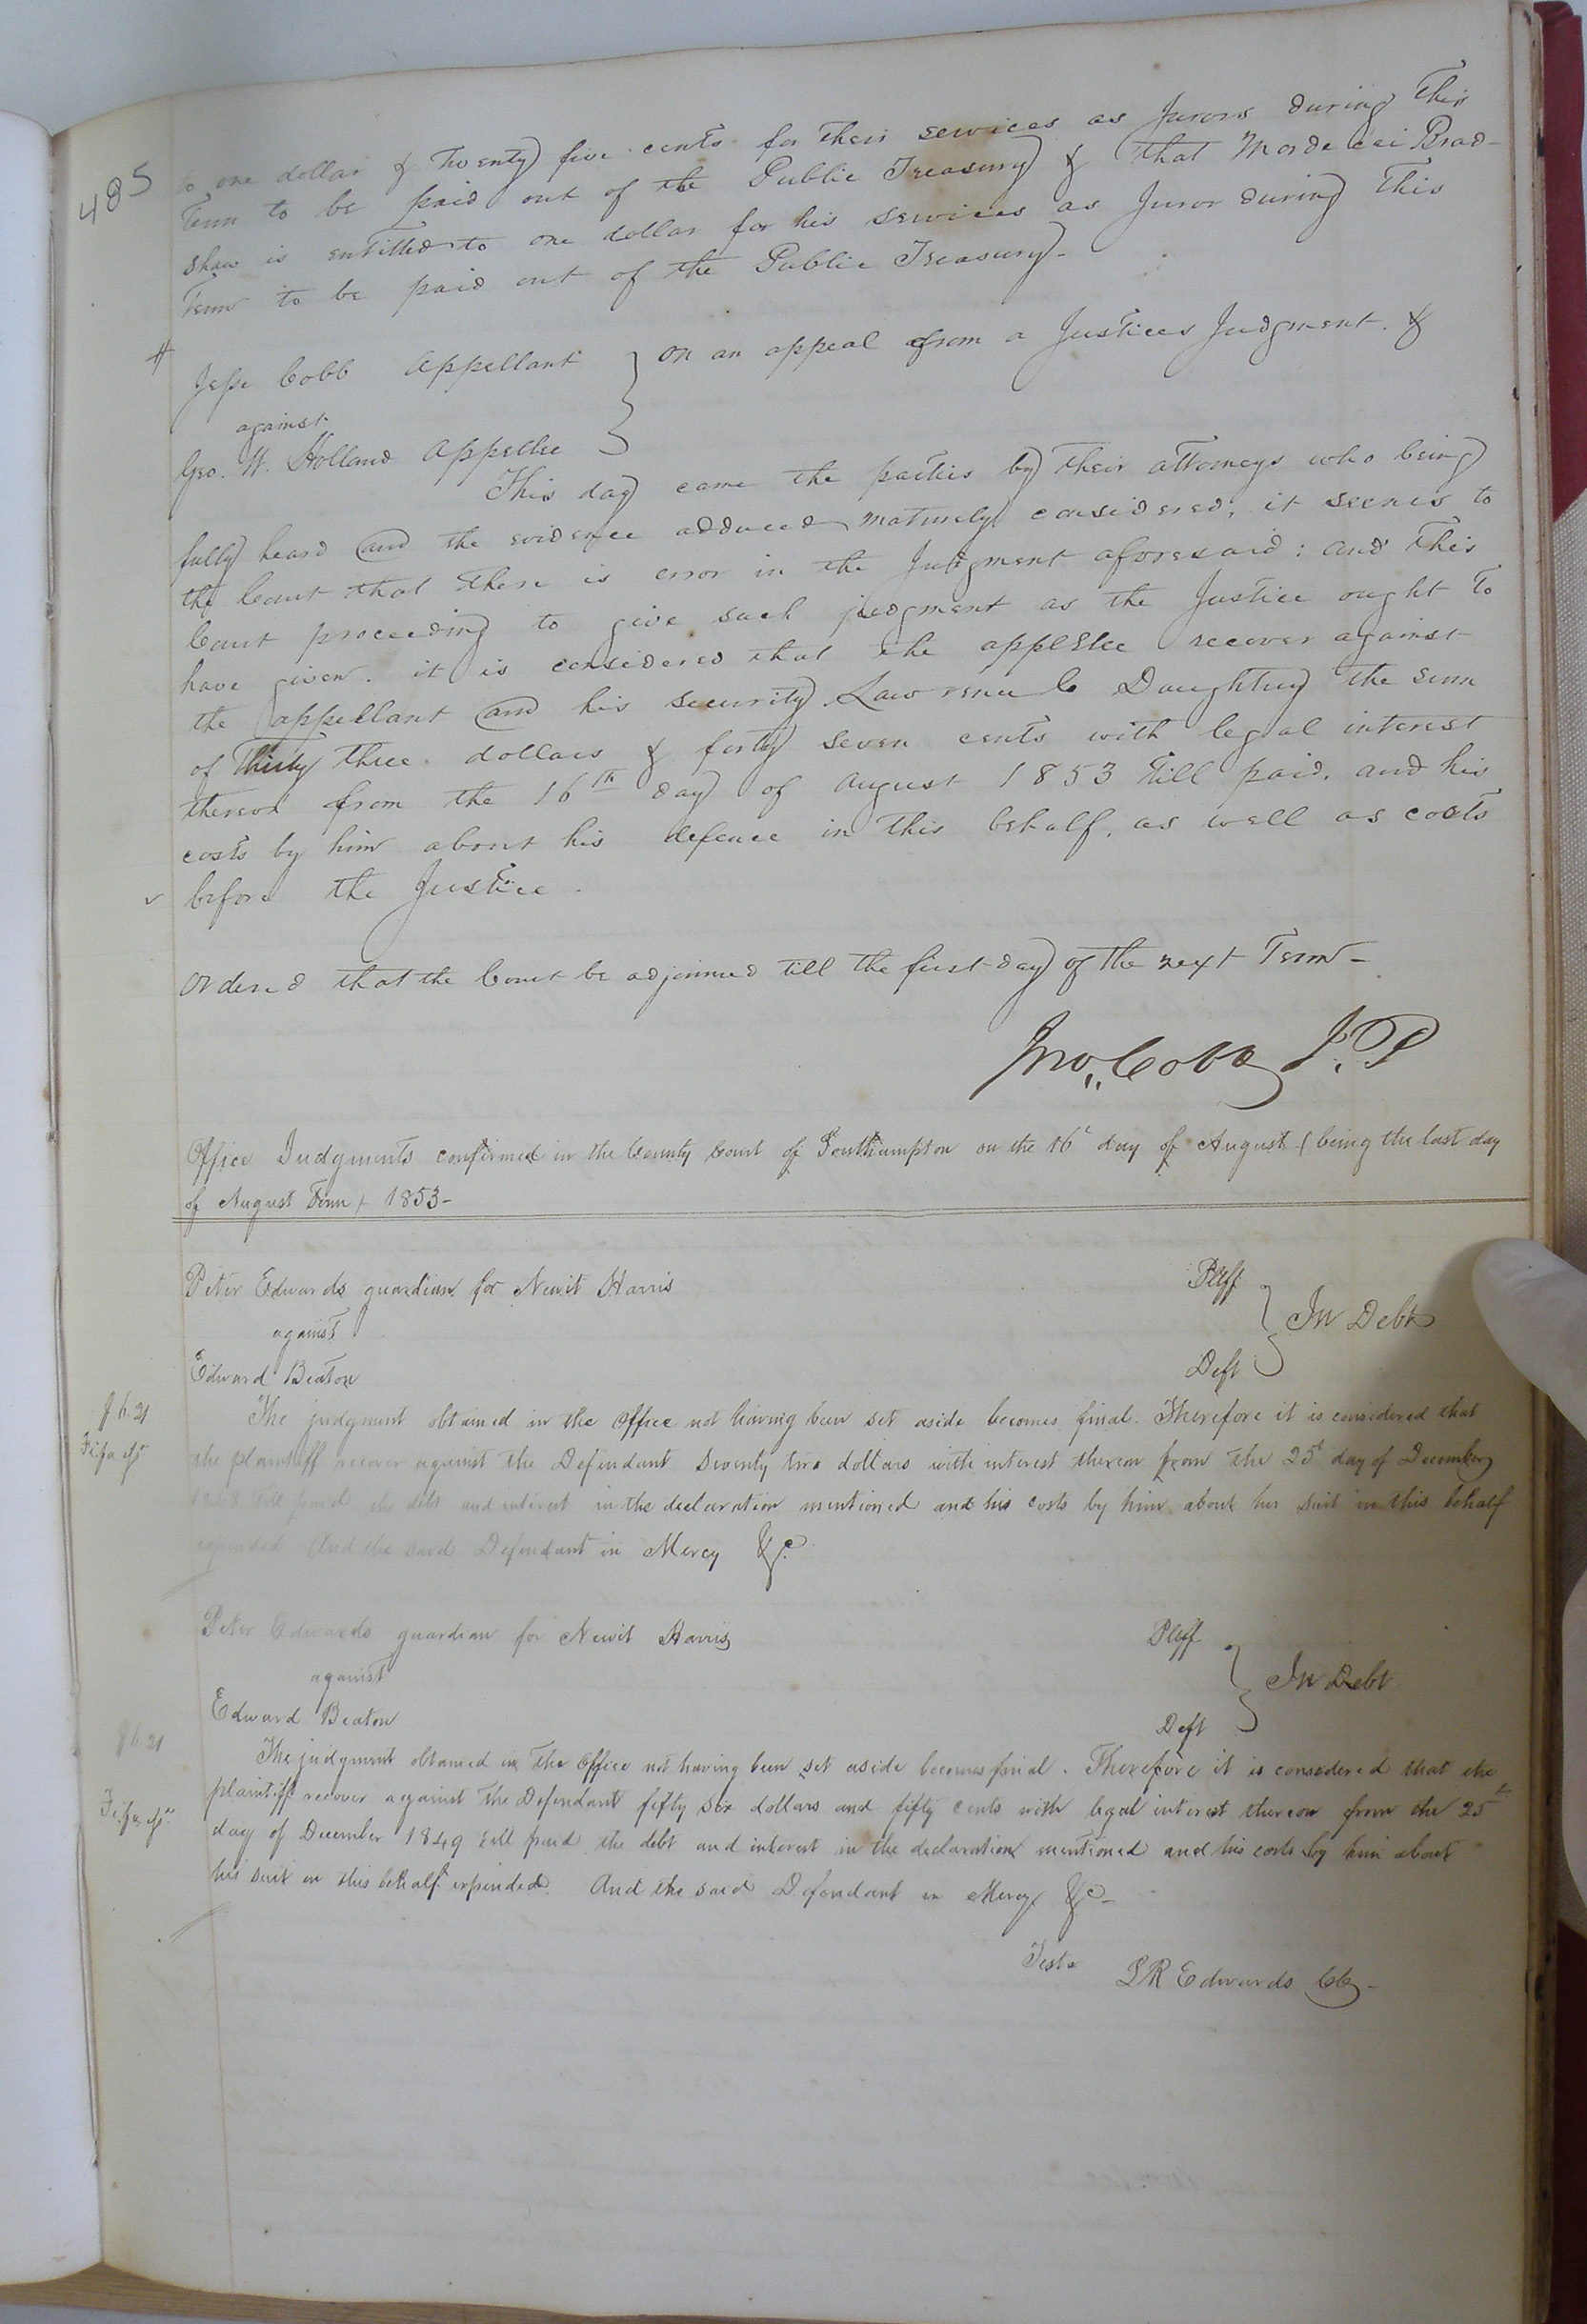 485
to one dollar & Twenty five cents for their services as Jurors during This
Term to be paid out of the Public Treasury & that Mordecai Brad-
shaw is entitled to one dollar for his services as Juror during This
Term to be paid out of the Public Treasury-
#
Jesse Cobb Appellant } on an appeal from a Justices Judgment. &
against
Geo. W. Holland Appellee
This day came the parties by their attorneys who being
fully heard and the evidence adduced maturely considered, it seems to
the Court that there is error in the Judgment aforesaid: and This
Court proceeding to give such judgment as the Justice ought to
have given. it is considered that the appellee recover against
the appellant and his security Lawrence C Daughtrey the sum
of Thirty three dollars & forty seven cents with legal interest
thereon from the 16th day of August 1853 till paid. and his
costs by him about his defence in this behalf. as well as costs
before the Justice.
Ordered that the Court be adjourned till the first day of the next Term-
Jno. Cobb J.P
Office Judgments confirmed in the County Court of Southampton on the 16t day of August (being the last day
of August Term) 1853-
Peter Edwards guardian for Newit Harris Plff
against } In Debt
Edward Beaton Deft
The judgment obtained in the Office not having been set aside becomes final. Therefore it is considered that
the plaintiff recover against the Defendant Seventy two dollars with interest thereon from the 25t day of December
till paid the debt and interest in the declaration mentioned and his costs by him about his suit in this behalf
expended And the said Defendant in Mercy &c.
Peter Edwards guardian for Newit Harris Plff
against } In Debt
Edward Beaton Deft
The judgment obtained in The Office not having been set aside becomes final. Therefore it is considered that the
plaintiff recover against The Defendant fifty six dollars and fifty cents with legal interest thereon from the 25th
day of December 1849 till paid the debt and interest in the declaration mentioned and his costs by him about
his suit in this behalf expended. And the said Defendant in Mercy &c-
Teste LR Edwards Clk-